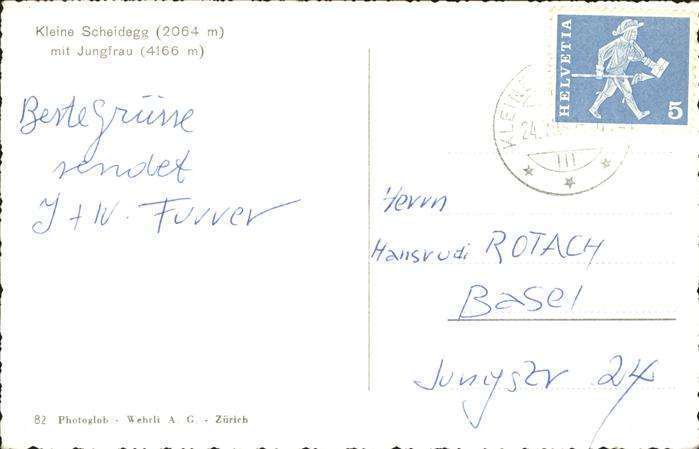 Kleine Scheidegg (2064 m)
mit Jungfrau (4166 m)
Beste Grüsse
sendet
J + W. Furrer
82 Photoglob - Wehrli A. G. - Zürich
HELVETIA
5
KLEINE
24.
III
Herrn
Hansrudi ROTACH
Basel
24